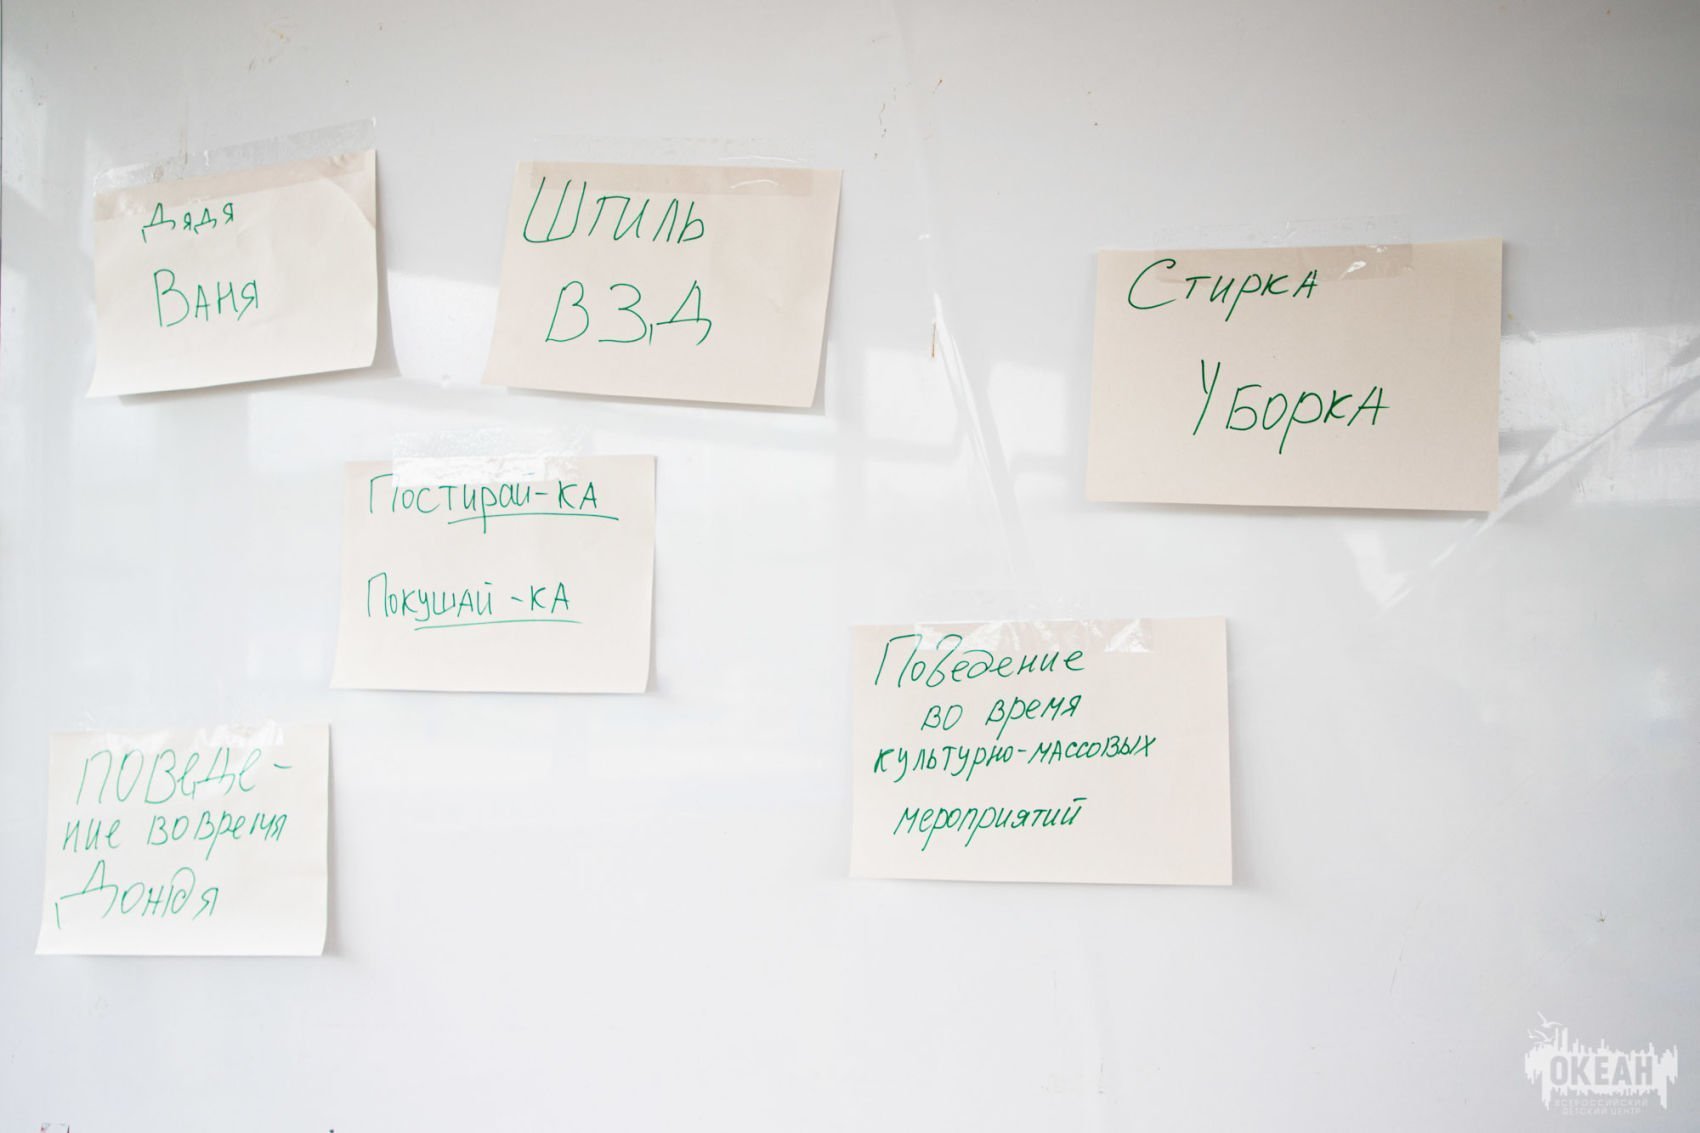 Дядя
Ваня
Штиль
ВЗД
Стирка
Уборка
Постирай-ка
Покушай-ка
Поведение
во время
культурно-массовых
мероприятий
Поведе-
ние во время
Дождя
ОКЕАН
ВСЕРОССИЙСКИЙ
ДЕТСКИЙ ЦЕНТР